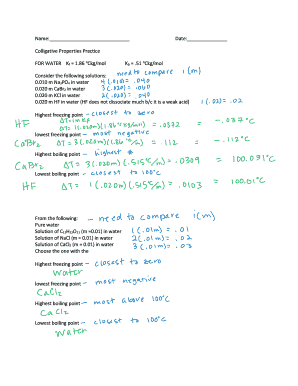 Name: Date:
Colligative Properties Practice
FOR WATER Kf = 1.86 °C/kg/mol Kb = .51 °C/kg/mol
Consider the following solutions: need to compare i(m)
0.010 m Na3PO4 in water 4(.010) = .040
0.020 m CaBr2 in water 3(.020) = .060
0.020 m KCl in water 2(.020) = .040
0.020 m HF in water (HF does not dissociate much b/c it is a weak acid) 1(.02) = .02
Highest freezing point - closest to zero
HF ΔT = i m Kf
ΔT = 1(.020m)(1.86°C kg/mol) = .0372 = -.037°C
Lowest freezing point - most negative
CaBr2 ΔT = 3(.020m)(1.86°C/m) = .112 = -.112°C
Highest boiling point - highest #
CaBr2 ΔT = 3(.020m)(.515°C/m) = .0309 = 100.031°C
Lowest boiling point - closest to 100°C
HF ΔT = 1(.020m)(.515°C/m) = .0103 = 100.01°C
From the following: - need to compare i(m)
Pure water
Solution of C12H22O11 (m =0.01) in water 1(.01m) = .01
Solution of NaCl (m = 0.01) in water 2(.01m) = .02
Solution of CaCl2 (m = 0.01) in water 3(.01m) = .03
Choose the one with the
Highest freezing point - closest to zero
Water
Lowest freezing point - most negative
CaCl2
Highest boiling point - most above 100°C
CaCl2
Lowest boiling point - closest to 100°C
Water